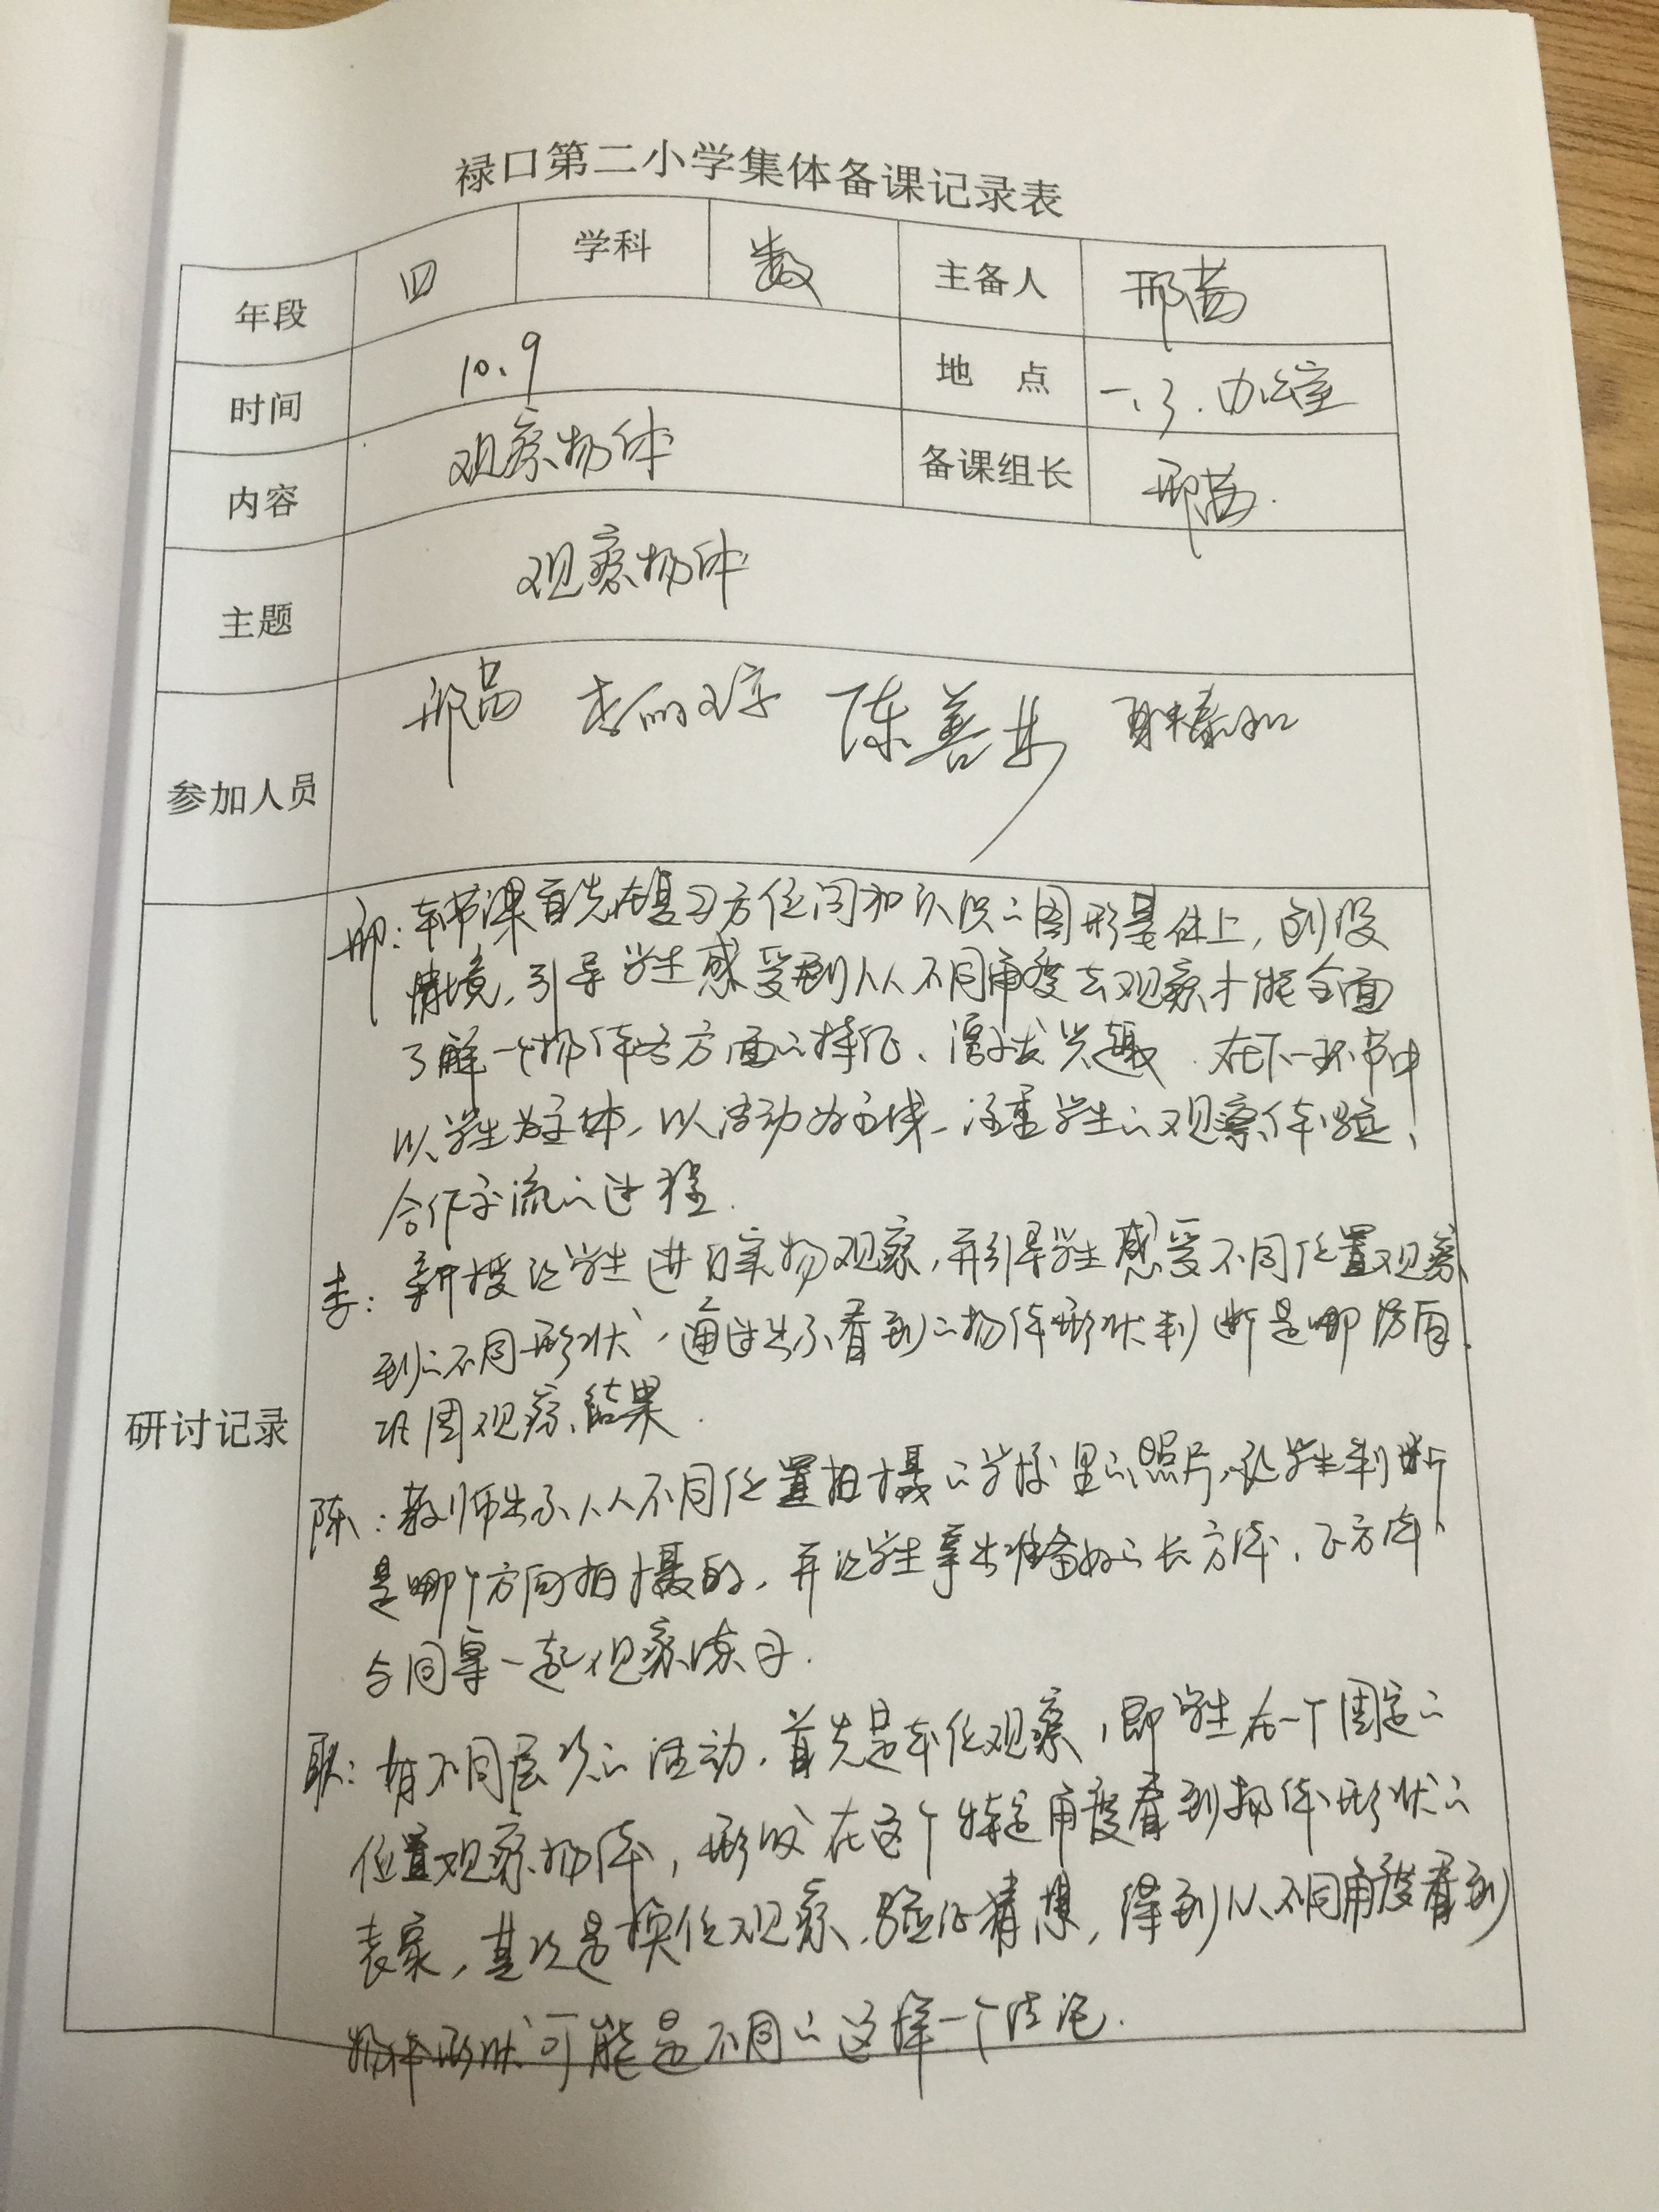 禄口第二小学集体备课记录表
年段 四 学科 数 主备人 邢茜
时间 10.9 地 点 一、3.办公室
内容 观察物体 备课组长 邢茜.
主题 观察物体
参加人员 邢茜 李 陈善 耿
研讨记录
邢：本节课首先在复习方位词和认识的图形基础上，创设
情境，引导学生感受到从不同角度去观察才能全面
了解一个物体各方面的特征、激发兴趣．在下一环节中
以学生为主体，以活动为主线，注重学生的观察体验、
合作交流的过程．
李：新授让学生进行实物观察，并引导学生感受不同位置观察
到的不同形状，通过出示看到的物体形状判断是哪方向．
巩固观察结果．
陈：教师出示从不同位置拍摄的学校里的照片，让学生判断
是哪个方向拍摄的，并让学生拿出准备好的长方体、正方体
与同桌一起观察练习．
耿：有不同层次的活动．首先是本位观察，即学生在一个固定的
位置观察物体，形成在这个特定角度看到物体形状的
表象，其次是换位观察，验证猜想，得到从不同角度看到
物体形状可能是不同的这样一个结论．